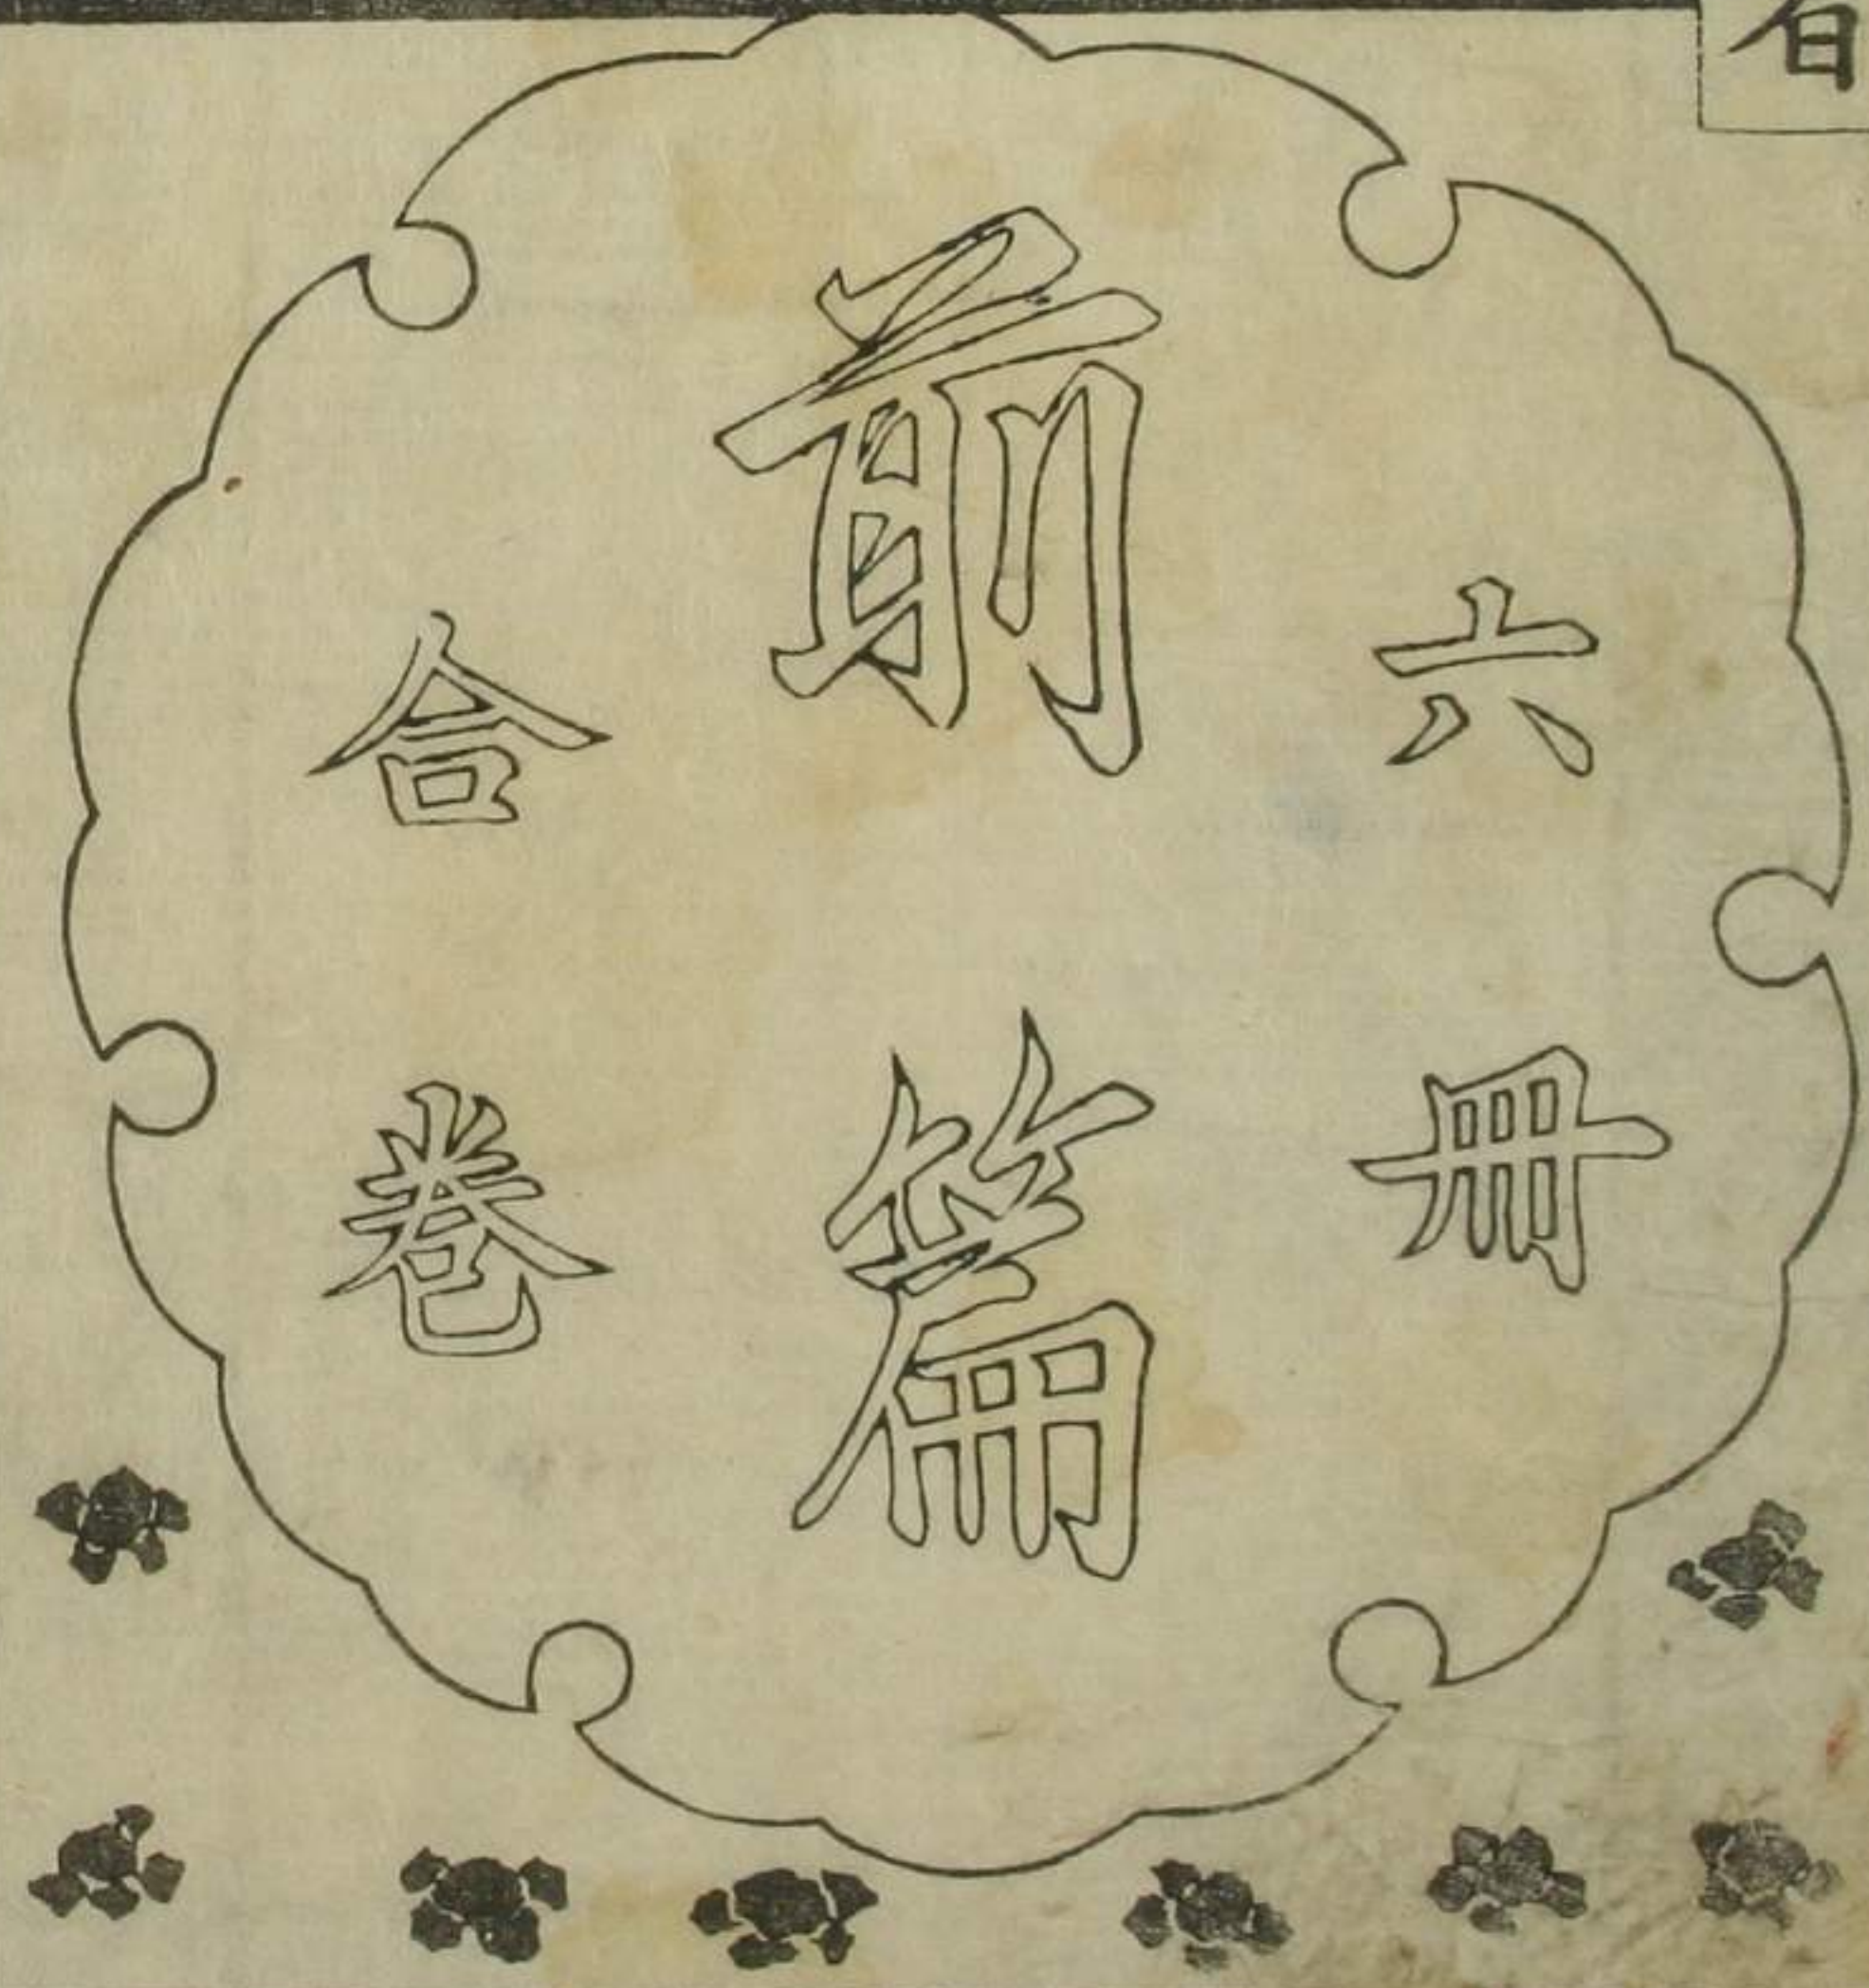 六冊
前篇
合巻